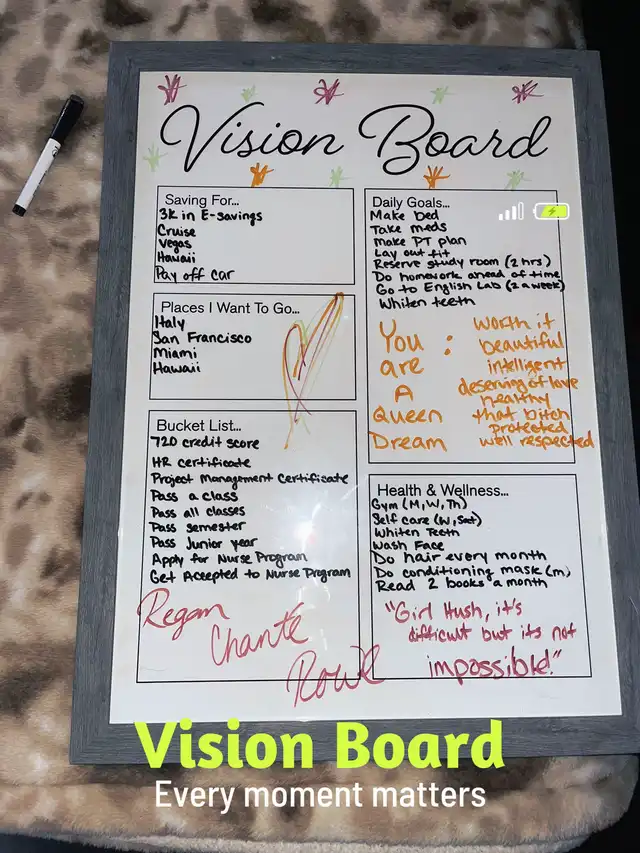 Vision Board
Saving For...
3K in E-savings
Cruise
Vegas
Hawaii
Pay off car
Places I Want To Go...
Italy
San Francisco
Miami
Hawaii
Bucket List...
720 credit score
HR certificate
Project Management Certificate
Pass a class
Pass all classes
Pass semester
Pass Junior year
Apply for Nurse Program
Get Accepted to Nurse Program
Regan
Chanté
Rowe
Daily Goals...
Make bed
Take meds
Make PT plan
Lay out fit
Reserve study room (2 hrs)
Do homework ahead of time
Go to English Lab (2 a week)
Whiten teeth
You are : A Queen Dream
worth it
beautiful
intelligent
deserving of love
healthy
that bitch
protected
well respected
Health & Wellness...
Gym (M, W, Th)
Self care (W, Sat)
Whiten Teeth
Wash Face
Do hair every month
Do conditioning mask (m)
Read 2 books a month
"Girl Hush, it's
difficult but its not
impossible!"
Vision Board
Every moment matters